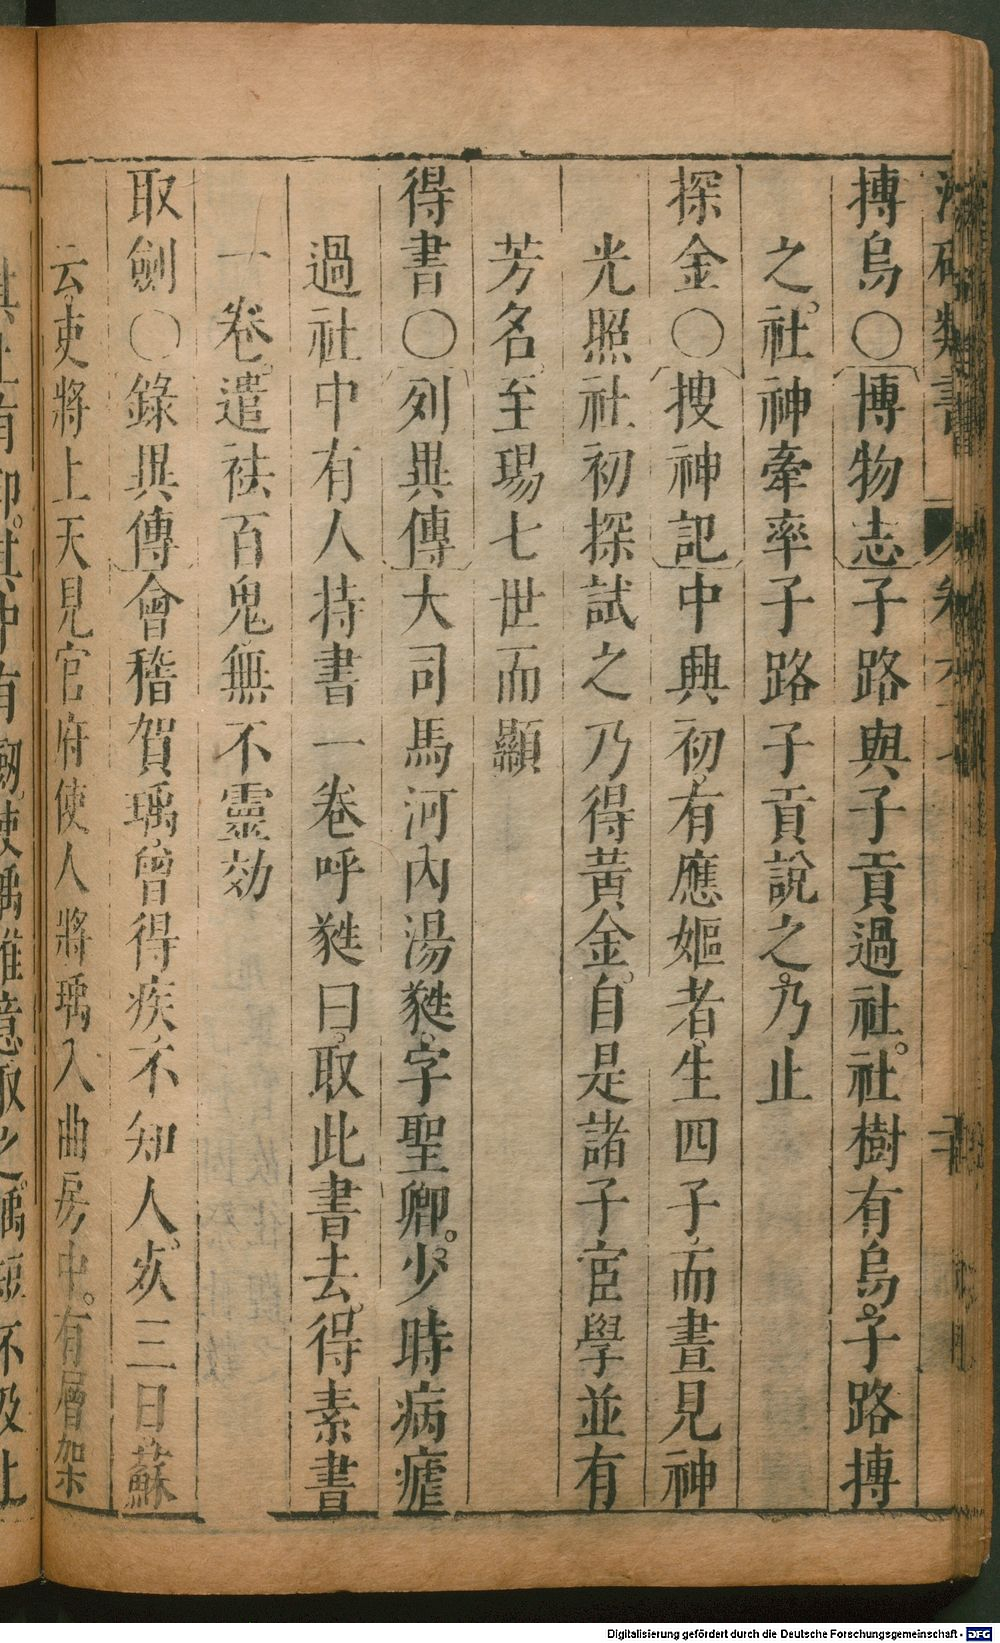 搏烏○博物志子路與子貢過社社樹有烏子路搏
之社神牽率子路子貢說之乃止
探金○搜神記中興初有應嫗者生四子而晝見神
光照社初探試之乃得黃金自是諸子宦學並有
芳名至瑒七世而顯
得書○列異傳大司馬河內湯蕤字聖卿少時病瘧
過社中有人持書一卷呼蕤曰取此書去得素書
一卷遣祛百鬼無不靈効
取劍○錄異傳會稽賀瑀曾得疾不知人死三日蘇
云吏將上天見官府使人將瑀入曲房中有層架
Digitalisierung gefördert durch die Deutsche Forschungsgemeinschaft - DFG